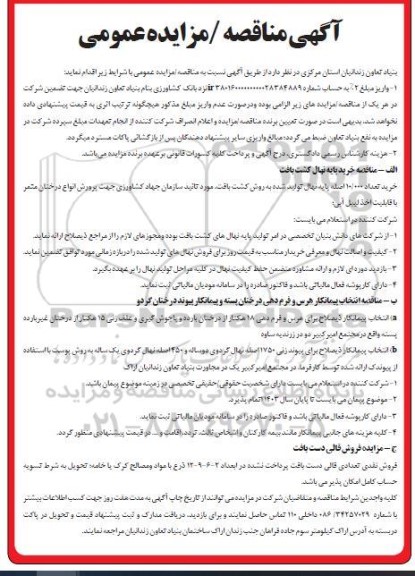 آگهی مناقصه /مزایده عمومی
بنیاد تعاون زندانیان استان مرکزی در نظر دارد از طریق آگهی نسبت به مناقصه/مزایده عمومی با شرایط زیر اقدام نماید:
۱- واریز مبلغ ۲٪ به حساب شماره نزد بانک کشاورزی بنام بنیاد تعاون زندانیان جهت تضمین شرکت
در هر یک از مناقصه/مزایده های زیر الزامی بوده ودرصورت عدم واریز مبلغ مذکور هیچگونه ترتیب اثری به قیمت پیشنهادی داده
نخواهد شد. بدیهی است در صورت تعیین برنده مناقصه/مزایده و اعلام انصراف شرکت کننده از انجام تعهدات مبلغ سپرده شرکت در
مزایده به نفع بنیاد تعاون ضبط می گردد؛ مبالغ واریزی سایر پیشنهاد دهندگان پس از بازگشائی پاکات مسترد میگردد.
۲- هزینه کارشناس رسمی دادگستری، درج آگهی و پرداخت کلیه کسورات قانونی برعهده برنده مزایده می باشد.
الف – مناقصه خرید پایه نهال کشت بافت
خرید تعداد ۱۰/۰۰۰ اصله پایه نهال تولید شده به روش کشت بافت، مورد تائید سازمان جهاد کشاورزی جهت پرورش انواع درختان مثمر
با قابلیت اخذ لیبل آبی؛
شرکت کننده در استعلام می بایست:
۱- از شرکت های دانش بنیان تخصصی در امر تولید پایه نهال های کشت بافت بوده ومجوزهای لازم را از مراجع ذیصلاح ارائه نماید.
۲- کیفیت و اصالت نهال و معرفی خریدار مناسب به قیمت روز برای فروش نهال های تولید شده را دربازه زمانی مورد توافق تضمین نماید.
۳- بازدید دوره ای لازم و ارائه مشاوره متضمن حفظ کیفیت نهال در کلیه مراحل تولید نهال را بر عهده بگیرد.
۴- دارای کارپوشه فعال مالیاتی باشد و فاکتور صادره را در سامانه مودیان مالیاتی ثبت نماید.
ب – مناقصه انتخاب پیمانکار هرس و فرم دهی درختان پسته و پیمانکار پیوند درختان گردو
a) انتخاب پیمانکار ذیصلاح برای هرس و فرم دهی ۱۸ هکتار از درختان بارده و پاجوش گیری و علف زنی ۱۵ هکتار از درختان غیربارده
پسته واقع در مجتمع امیرکبیر دو در زرندیه ساوه
b) انتخاب پیمانکار ذیصلاح برای پیوند زنی ۱۷۵۰ اصله نهال گردوی دوساله و ۱۴۵۰ اصله نهال گردوی یک ساله به روش پوست با استفاده
از پیوندک ارائه شده توسط کارفرما، در مجتمع امیرکبیر یک در مجاورت بنیاد تعاون زندانیان اراک
۱- شرکت کننده در استعلام می بایست دارای شخصیت حقوقی/حقیقی تخصصی در زمینه موضوع پیمان باشد.
۲- موضوع پیمان می بایست تا پایان سال ۱۴۰۳ اتمام پذیرد.
۳- دارای کارپوشه فعال مالیاتی باشد و فاکتور صادره را در سامانه مودیان مالیاتی ثبت نماید.
۴- کلیه هزینه های جانبی پیمانکار مانند بیمه کارکنان و اشخاص ثالث، تردد، اقامت و... در قیمت پیشنهادی منظور گردد.
ج – مزایده فروش قالی دست بافت
فروش نقدی تعدادی قالی دست بافت پرداخت نشده در ابعاد ۲-۶-۹-۱۲ ذرع با مواد ومصالح کرک یا خامه؛ تحویل به شرط تسویه
حساب کامل امکان پذیر می باشد.
کلیه واجدین شرایط مناقصه و متقاضیان شرکت در مزایده می توانند از تاریخ چاپ آگهی به مدت هفت روز جهت کسب اطلاعات بیشتر
با شماره ۰۸۶/۳۴۲۵۷۰۲۹ داخلی ۱۱۰ تماس حاصل نمایند و برای بازدید، دریافت مدارک و ثبت پیشنهاد قیمت و تحویل در پاکت
دربسته به آدرس اراک کیلومتر سوم جاده فراهان جنب زندان اراک ساختمان بنیاد تعاون زندانیان مراجعه نمایند.